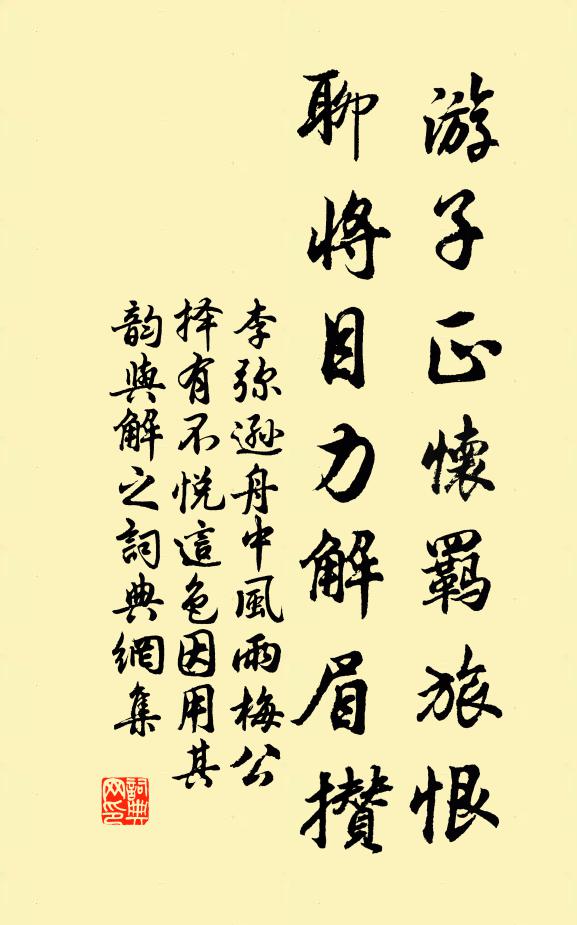 游子正懷羇旅恨
聊將目力解眉攢
李弥遜舟中風雨梅公
择有不悦這色因用其
韵與解之詞典網集
詞典網印